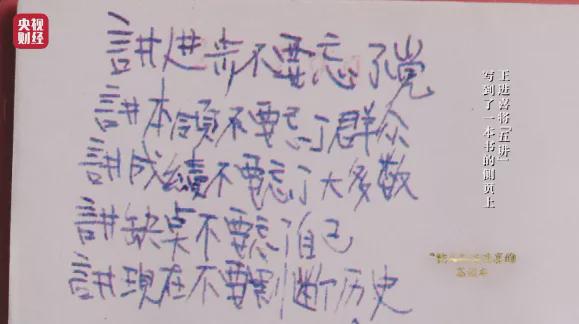 央视财经
讲进步不要忘了党
讲本領不要忘了群众
讲成績不要忘了大多数
讲缺点不要忘了自己
讲現在不要割断历史
王进喜将“五讲”
写到了一本书的侧页上